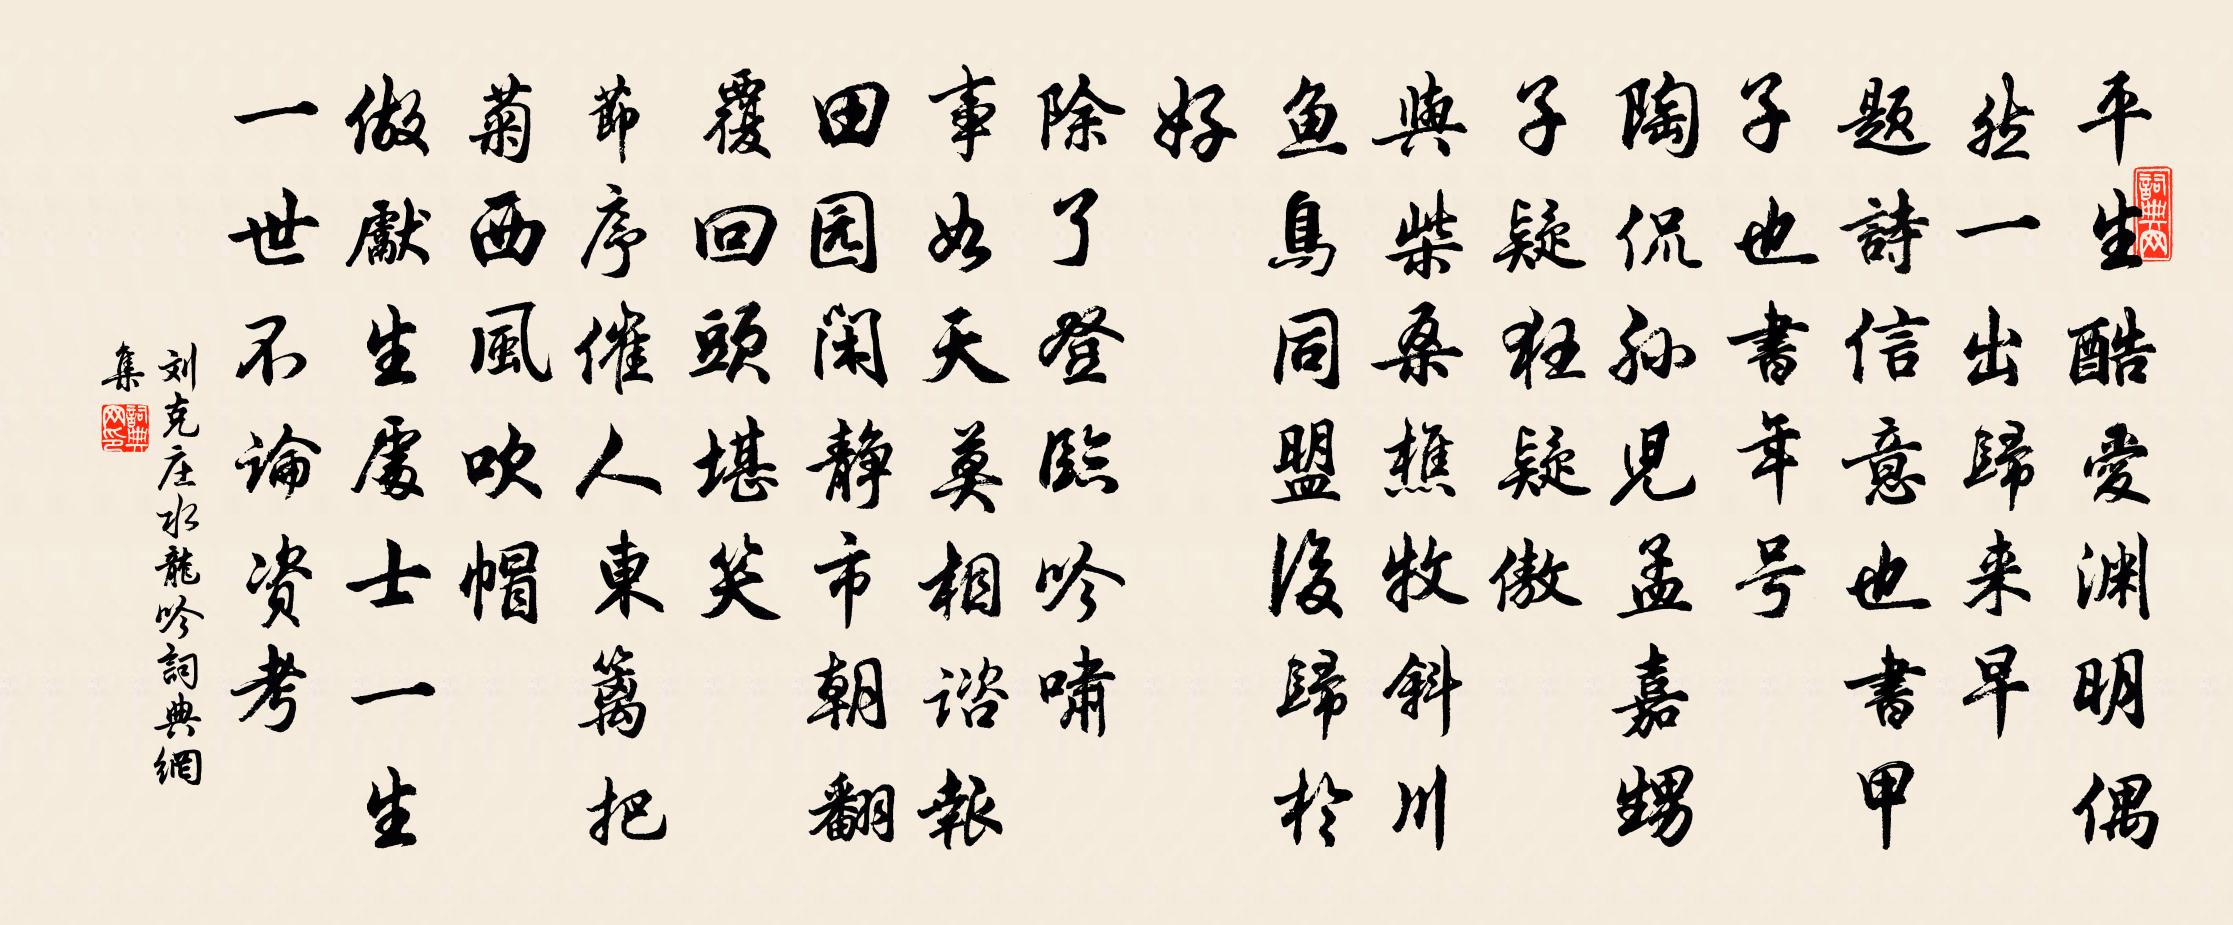 詞典网
平生酷愛渊明偶
然一出歸来早
题詩信意也書甲
子也書年号
陶侃孙児孟嘉甥
子疑狂疑傲
與柴桑樵牧斜川
魚鳥同盟後歸於
好
除了登臨吟嘯
事如天莫相諮報
田园闲静市朝翻
覆回頭堪笑
節序催人東篱把
菊西風吹帽
做獻生處士一生
一世不論资考
刘克庄水龍吟詞典網
集
詞典网印